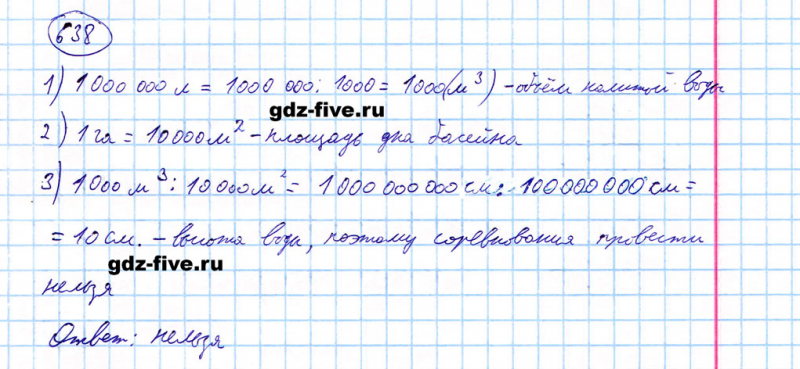 638
1) 1000 000 л = 1000 000 : 1000 = 1000 (м³) - объём налитой воды
gdz-five.ru
2) 1 га = 10 000 м² - площадь дна басейна
3) 1000 м³ : 10 000 м² = 1 000 000 000 см : 100 000 000 см =
= 10 см. - высота воды, поэтому соревнования провести
gdz-five.ru
нельзя
Ответ: нельзя